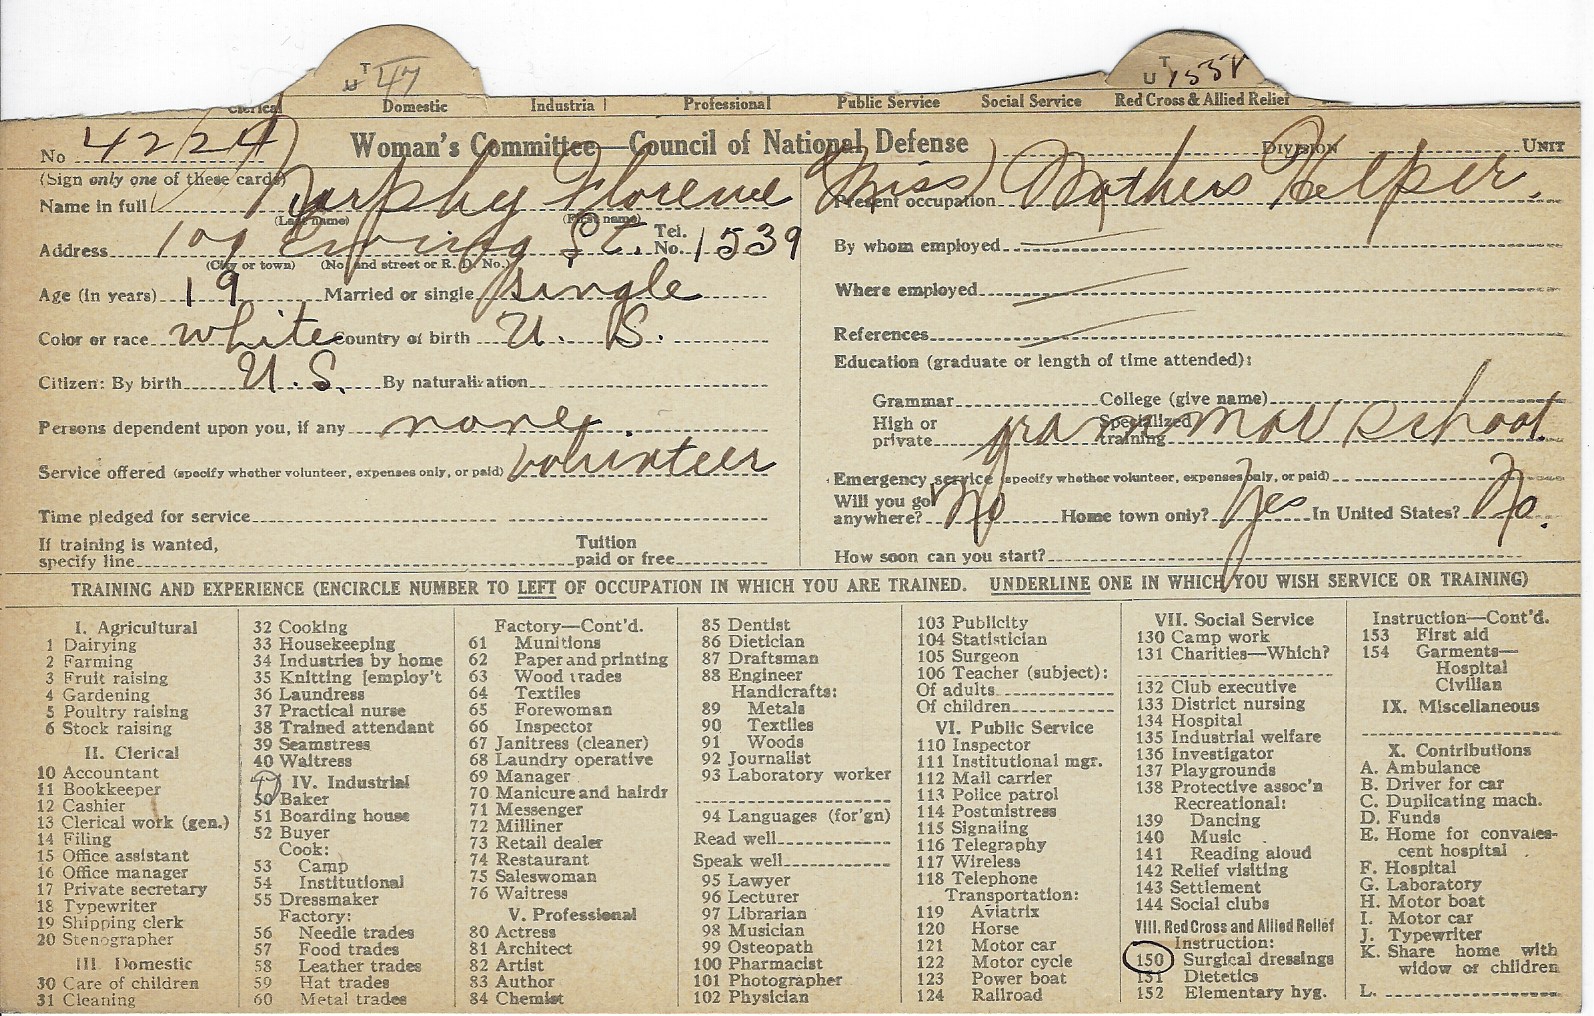 U T 47
U T 155V
Clerical Domestic Industrial Professional Public Service Social Service Red Cross & Allied Relief
No 4224 Woman's Committee—Council of National Defense DIVISION UNIT
(Sign only one of these cards)
Name in full Murphy Florence (Miss) Present occupation Mothers Helper.
(Last name) (First name)
Address 109 Ewing St. Tel. No. 1539 By whom employed
(City or town) (No. and street or R. D. No.)
Age (in years) 19 Married or single single Where employed
Color or race white Country of birth U. S. References
Citizen: By birth U.S. By naturalization
Education (graduate or length of time attended):
Grammar College (give name)
Persons dependent upon you, if any none
High or private Specialized training grammar school
Service offered (specify whether volunteer, expenses only, or paid) volunteer
Emergency service (specify whether volunteer, expenses only, or paid)
Will you go anywhere? No Home town only? Yes In United States? No.
Time pledged for service
If training is wanted, specify line Tuition paid or free
How soon can you start?
TRAINING AND EXPERIENCE (ENCIRCLE NUMBER TO LEFT OF OCCUPATION IN WHICH YOU ARE TRAINED. UNDERLINE ONE IN WHICH YOU WISH SERVICE OR TRAINING)
I. Agricultural
1 Dairying
2 Farming
3 Fruit raising
4 Gardening
5 Poultry raising
6 Stock raising
II. Clerical
10 Accountant
11 Bookkeeper
12 Cashier
13 Clerical work (gen.)
14 Filing
15 Office assistant
16 Office manager
17 Private secretary
18 Typewriter
19 Shipping clerk
20 Stenographer
III. Domestic
30 Care of children
31 Cleaning
32 Cooking
33 Housekeeping
34 Industries by home
35 Knitting [employ't
36 Laundress
37 Practical nurse
38 Trained attendant
39 Seamstress
40 Waitress
47
IV. Industrial
50 Baker
51 Boarding house
52 Buyer
Cook:
53 Camp
54 Institutional
55 Dressmaker
Factory:
56 Needle trades
57 Food trades
58 Leather trades
59 Hat trades
60 Metal trades
Factory—Cont'd.
61 Munitions
62 Paper and printing
63 Wood trades
64 Textiles
65 Forewoman
66 Inspector
67 Janitress (cleaner)
68 Laundry operative
69 Manager
70 Manicure and hairdr
71 Messenger
72 Milliner
73 Retail dealer
74 Restaurant
75 Saleswoman
76 Waitress
V. Professional
80 Actress
81 Architect
82 Artist
83 Author
84 Chemist
85 Dentist
86 Dietician
87 Draftsman
88 Engineer
Handicrafts:
89 Metals
90 Textiles
91 Woods
92 Journalist
93 Laboratory worker
94 Languages (for'gn)
Read well
Speak well
95 Lawyer
96 Lecturer
97 Librarian
98 Musician
99 Osteopath
100 Pharmacist
101 Photographer
102 Physician
103 Publicity
104 Statistician
105 Surgeon
106 Teacher (subject):
Of adults
Of children
VI. Public Service
110 Inspector
111 Institutional mgr.
112 Mail carrier
113 Police patrol
114 Postmistress
115 Signaling
116 Telegraphy
117 Wireless
118 Telephone
Transportation:
119 Aviatrix
120 Horse
121 Motor car
122 Motor cycle
123 Power boat
124 Railroad
VII. Social Service
130 Camp work
131 Charities—Which?
132 Club executive
133 District nursing
134 Hospital
135 Industrial welfare
136 Investigator
137 Playgrounds
138 Protective assoc'n
Recreational:
139 Dancing
140 Music
141 Reading aloud
142 Relief visiting
143 Settlement
144 Social clubs
VIII. Red Cross and Allied Relief
Instruction:
150 Surgical dressings
151 Dietetics
152 Elementary hyg.
Instruction—Cont'd.
153 First aid
154 Garments—
Hospital
Civilian
IX. Miscellaneous
X. Contributions
A. Ambulance
B. Driver for car
C. Duplicating mach.
D. Funds
E. Home for convales-
cent hospital
F. Hospital
G. Laboratory
H. Motor boat
I. Motor car
J. Typewriter
K. Share home with
widow or children
L.